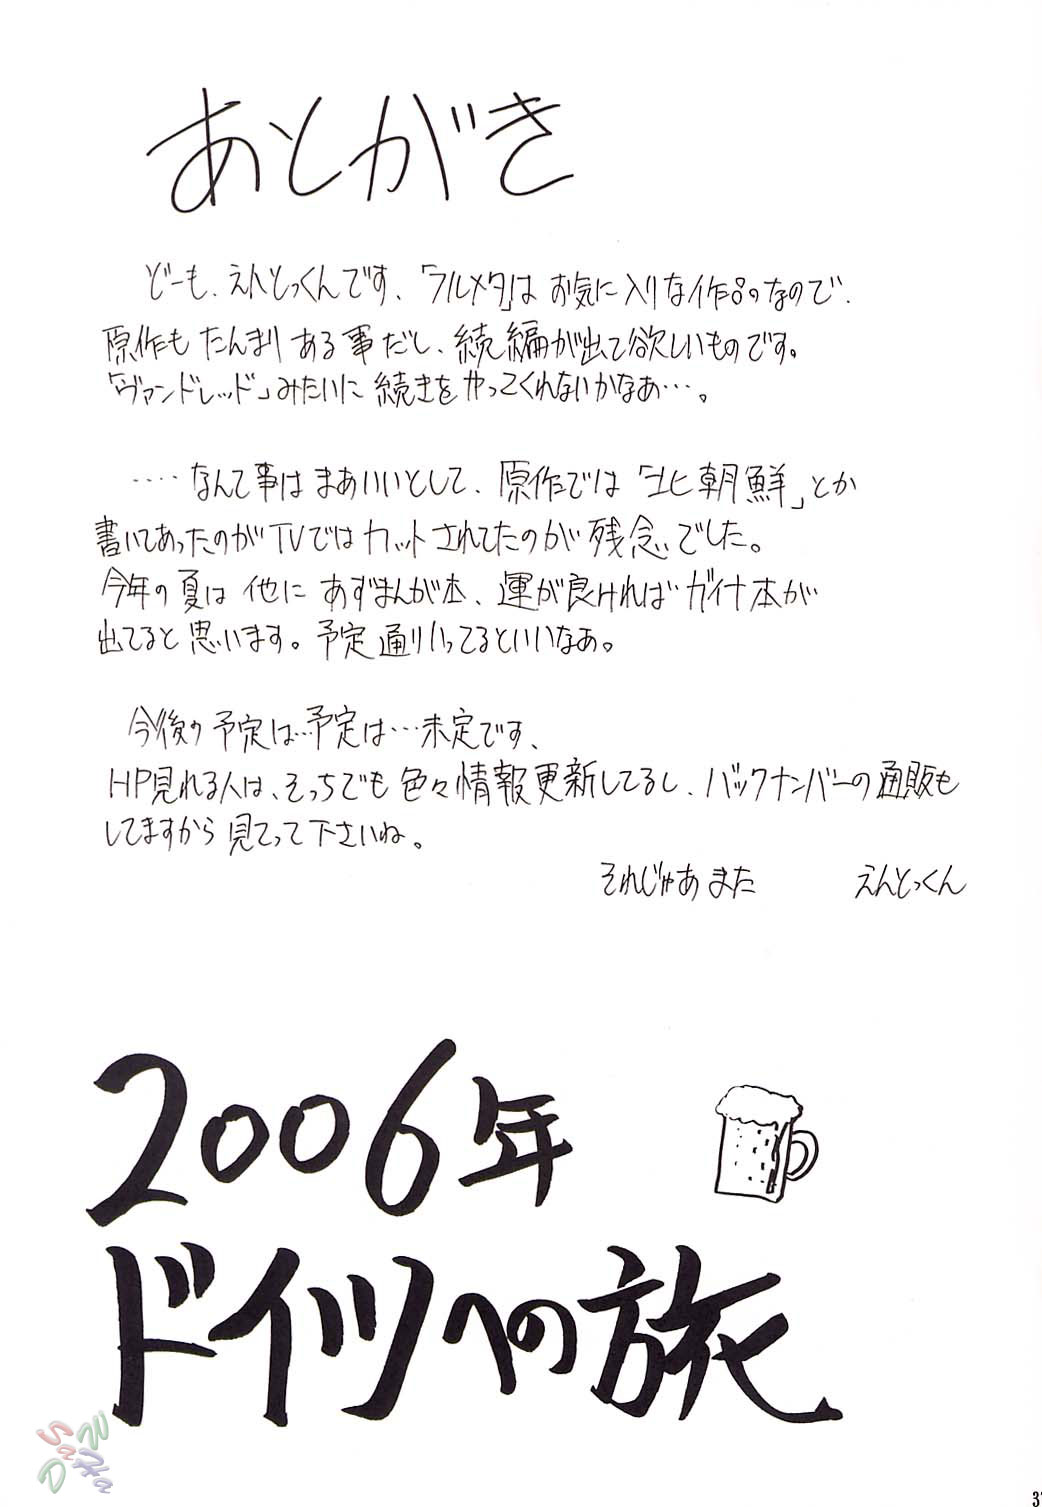 あとがき
どーも、えんとっくんです、「フルメタ」は お気に入りな作品のなので、
原作も たんまり ある事だし、続編が出て欲しいものです。
「ヴァンドレッド」みたいに 続きを やってくれないかなあ…。
‥‥なんて事は まあいいとして、原作では「北朝鮮」とか
書いてあったのがTVでは カットされてたのが 残念でした。
今年の夏は 他に あずまんが本、運が良ければ ガイナ本が
出てると思います。予定通りいってるといいなあ。
今後の予定は…予定は…未定です、
HP見れる人は、そっちでも色々情報更新してるし、バックナンバーの通販も
してますから 見てって下さいね。
それじゃあ また えんとっくん
2006年
ドイツへの旅